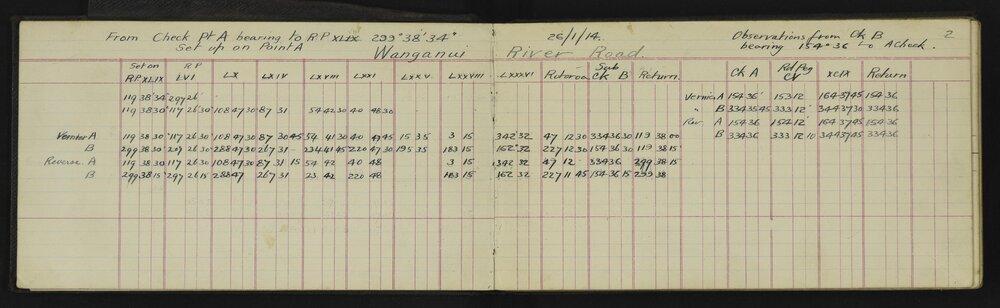 From Check Pt A bearing to R.P XLIX 299° 38' 34" 26/1/14. Observations from Ck B 2
Set up on Point A Wanganui River Road. bearing 154° 36 to A Check.
Set on R.P
RP XLIX LVI LX LXIV LXVIII LXXI LXXV LXXVIII LXXXVI Rotoroa Sub Ck B Return. Ck A Rd Peg CV XCIX Return
119 38' 34" 297 26' Vernier A 154 36' 153 12 164 37 45 154 36
119 38 30" 117 26' 30" 108 47 30 87 31 54 42 30 40 48 30 " B 334 35 45 333 12' 344 37 30 334 36
Rev. A 154 36 154 12' 164 37 45 154 36
Vernier A 119 38 30 117 26 30 108 47 30 87 30 45 54 41 30 40 47 45 15 35 3 15 342 32 47 12 30 334 36 30 119 38 00 B 334 36 333 12 10 344 37 45 334 36
B 299 38 30 297 26 30 288 47 30 267 31 234 41 45 220 47 30 195 35 183 15 162 32 227 12 30 154 36 30 119 38 15
Reverse. A 119 38 30 117 26 30 108 47 30 87 31 15 54 42 40 48 3 15 342 32 47 12 334 36 299 38 15
B 299 38 15 297 26 15 288 47 267 31 23 42 220 48 183 15 162 32 227 11 45 154 36 15 299 38